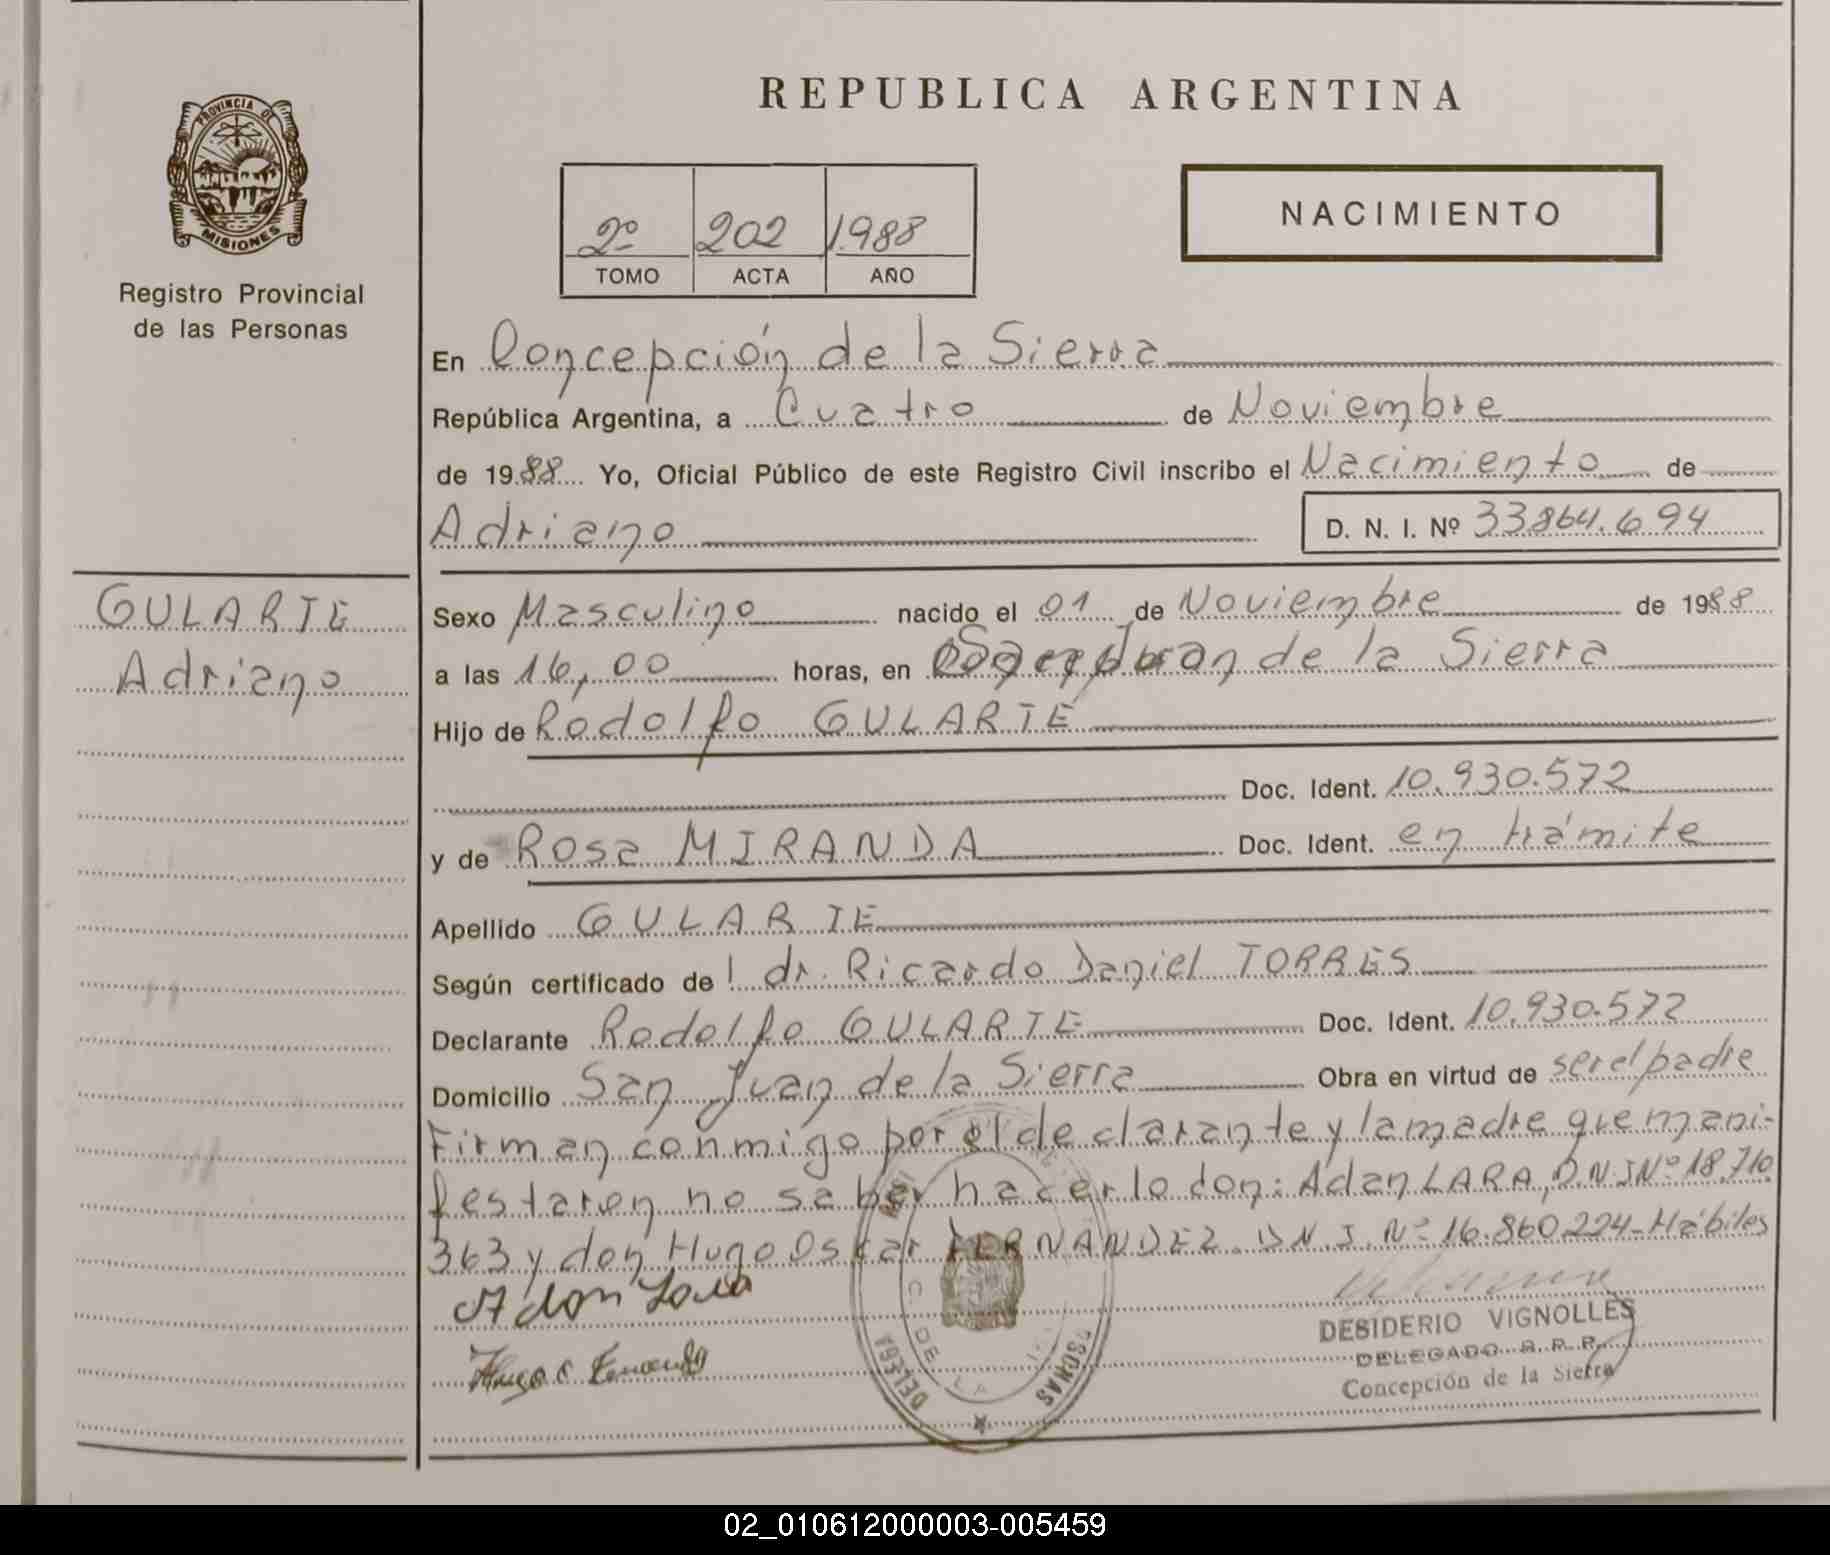 REPUBLICA ARGENTINA
PROVINCIA DE
MISIONES
Registro Provincial
de las Personas
2º 202 1988
TOMO ACTA AÑO
NACIMIENTO
En Concepción de la Sierra
República Argentina, a Cuatro de Noviembre
de 1988 Yo, Oficial Público de este Registro Civil inscribo el Nacimiento de
Adriano D. N. I. Nº 33.864.694
GULARTE
Adriano
Sexo Masculino nacido el 01 de Noviembre de 1988
a las 16,00 horas, en de la Sierra
Hijo de Rodolfo GULARTE
Doc. Ident. 10.930.572
y de Rosa MIRANDA Doc. Ident. en trámite
Apellido GULARTE
Según certificado de l dr. Ricardo Daniel TORRES
Declarante Rodolfo GULARTE Doc. Ident. 10.930.572
Domicilio San Juan de la Sierra Obra en virtud de ser el padre
Firman conmigo por el declarante y la madre que mani-
festaron no saber hacerlo don: Adan LARA, D.N.I Nº 18.710.
363 y don Hugo Oscar FERNANDEZ. D.N.I. Nº 16.860.224-Hábiles
Adan Lara
Hugo O Fernandez
DESIDERIO VIGNOLLES
DELEGADO R. P. P.
Concepción de la Sierra
02_010612000003-005459